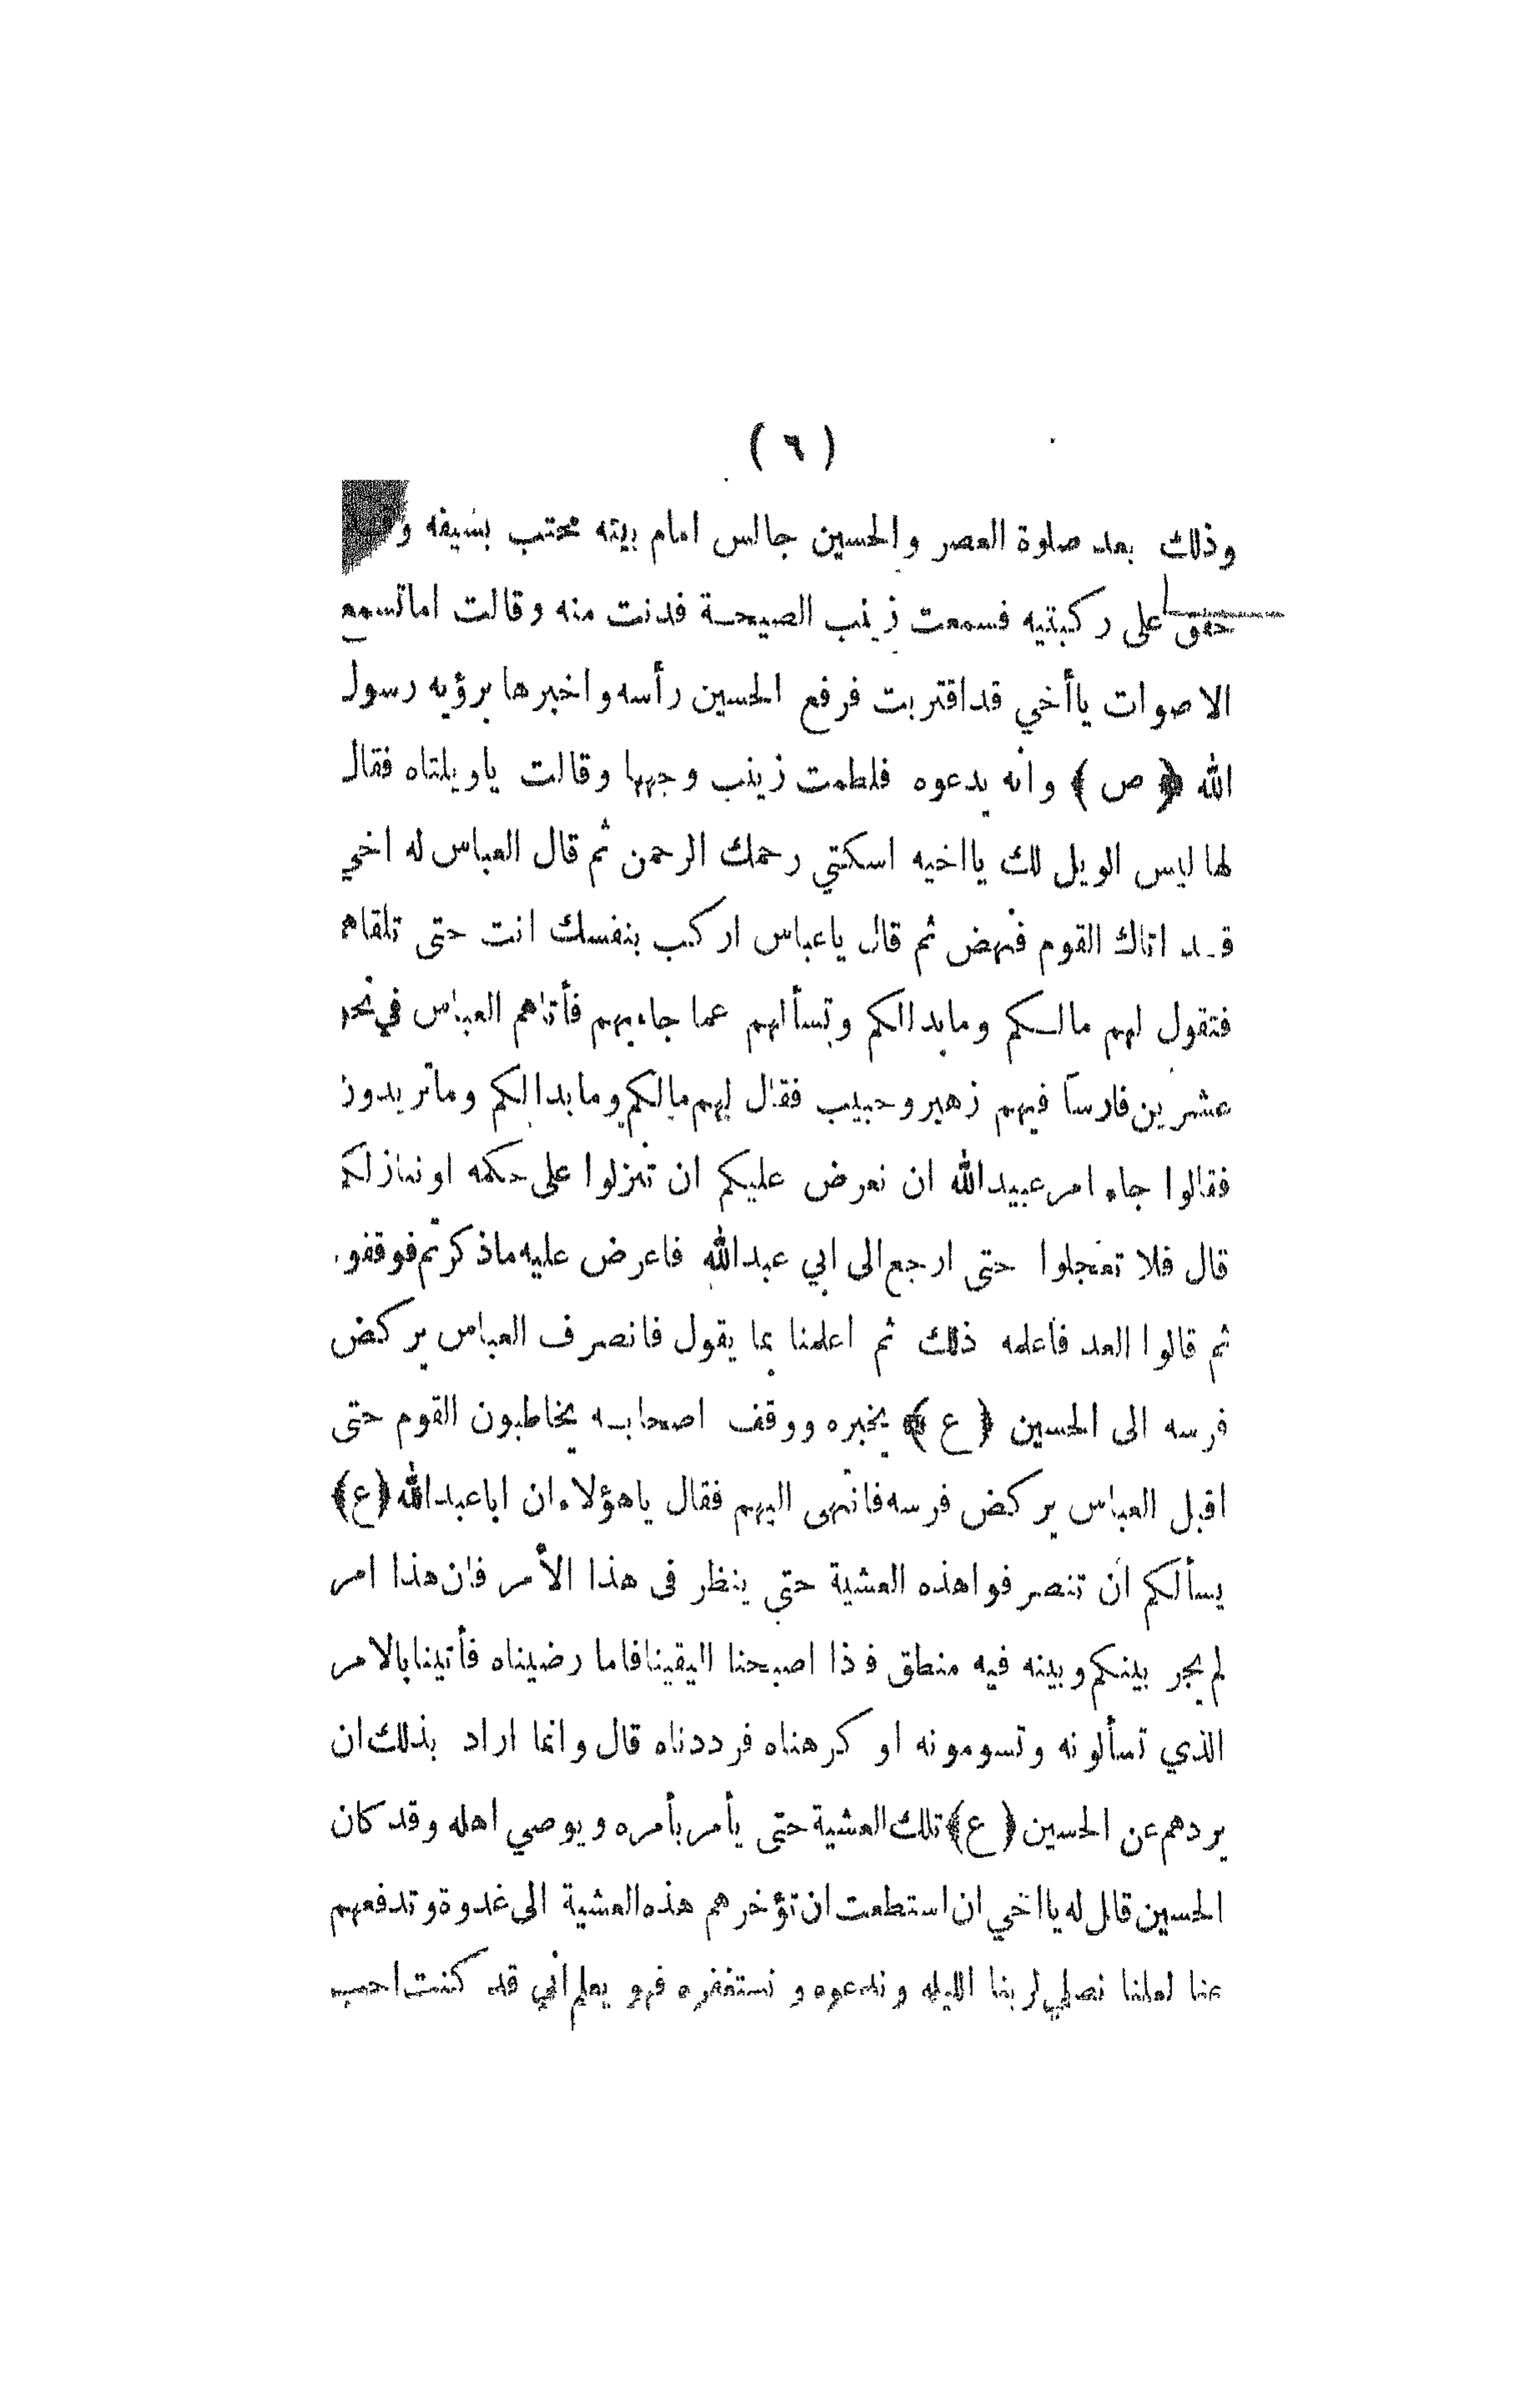 ( ٦ )
وذلك بعد صلوة العصر والحسين جالس امام بيته محتب بسيفه و
خفق على ركبتيه فسمعت زينب الصيحة فدنت منه وقالت اماتسمع
الاصوات ياأخي قداقتربت فرفع الحسين رأسه واخبرها برؤيه رسول
الله ﴿ ص ﴾ وانه يدعوه فلطمت زينب وجهها وقالت ياويلتاه فقال
لها ليس الويل لك يااخيه اسكتي رحمك الرحمن ثم قال العباس له اخي
قـد اتاك القوم فنهض ثم قال ياعباس اركب بنفسك انت حتى تلقاهم
فتقول لهم مالـكم ومابدالكم وتسألهم عما جاءبهم فأتاهم العباس في نحو
عشرين فارساً فيهم زهير وحبيب فقال لهم مالكم وما بدالكم وماتريدون
فقالوا جاء امر عبيدالله ان نعرض عليكم ان تنزلوا على حكمه او ننازلكم
قال فلا تعجلوا حتى ارجع الى ابي عبدالله فاعرض عليه ماذكرتم فوقفوا
ثم قالوا القه فاعلمه ذلك ثم اعلمنا بما يقول فانصرف العباس يركض
فرسه الى الحسين ﴿ ع ﴾ يخبره ووقف اصحابـه يخاطبون القوم حتى
اقبل العباس يركض فرسه فانتهى اليهم فقال ياهؤلاء ان اباعبدالله ﴿ع﴾
يسألكم ان تنصرفوا هذه العشية حتى ينظر فى هذا الأمر فان هذا امر
لم يجر بينكم وبينه فيه منطق فذا اصبحنا التقينا فاما رضيناه فأتينا بالامر
الذي تسألونه وتسومونه او كرهناه فرددناه قال وانما اراد بذلك ان
يردهم عن الحسين ﴿ ع ﴾ تلك العشية حتى يأمر بأمره ويوصي اهله وقد كان
الحسين قال له يااخي ان استطعت ان تؤخرهم هذه العشية الى غدوة وتدفعهم
عنا لعلنا نصلي لربنا الليله وندعوه و نستغفره فهو يعلم اني قد كنت احب